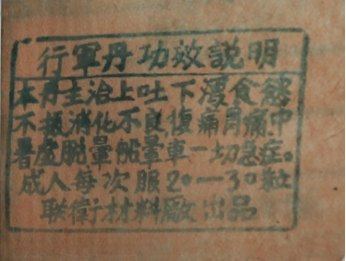 行軍丹功效説明
本丹主治上吐下瀉食慾
不振消化不良腹痛胃痛中
暑虛脫暈船暈車一切急症。
成人每次服20—30粒
联衛材料廠出品